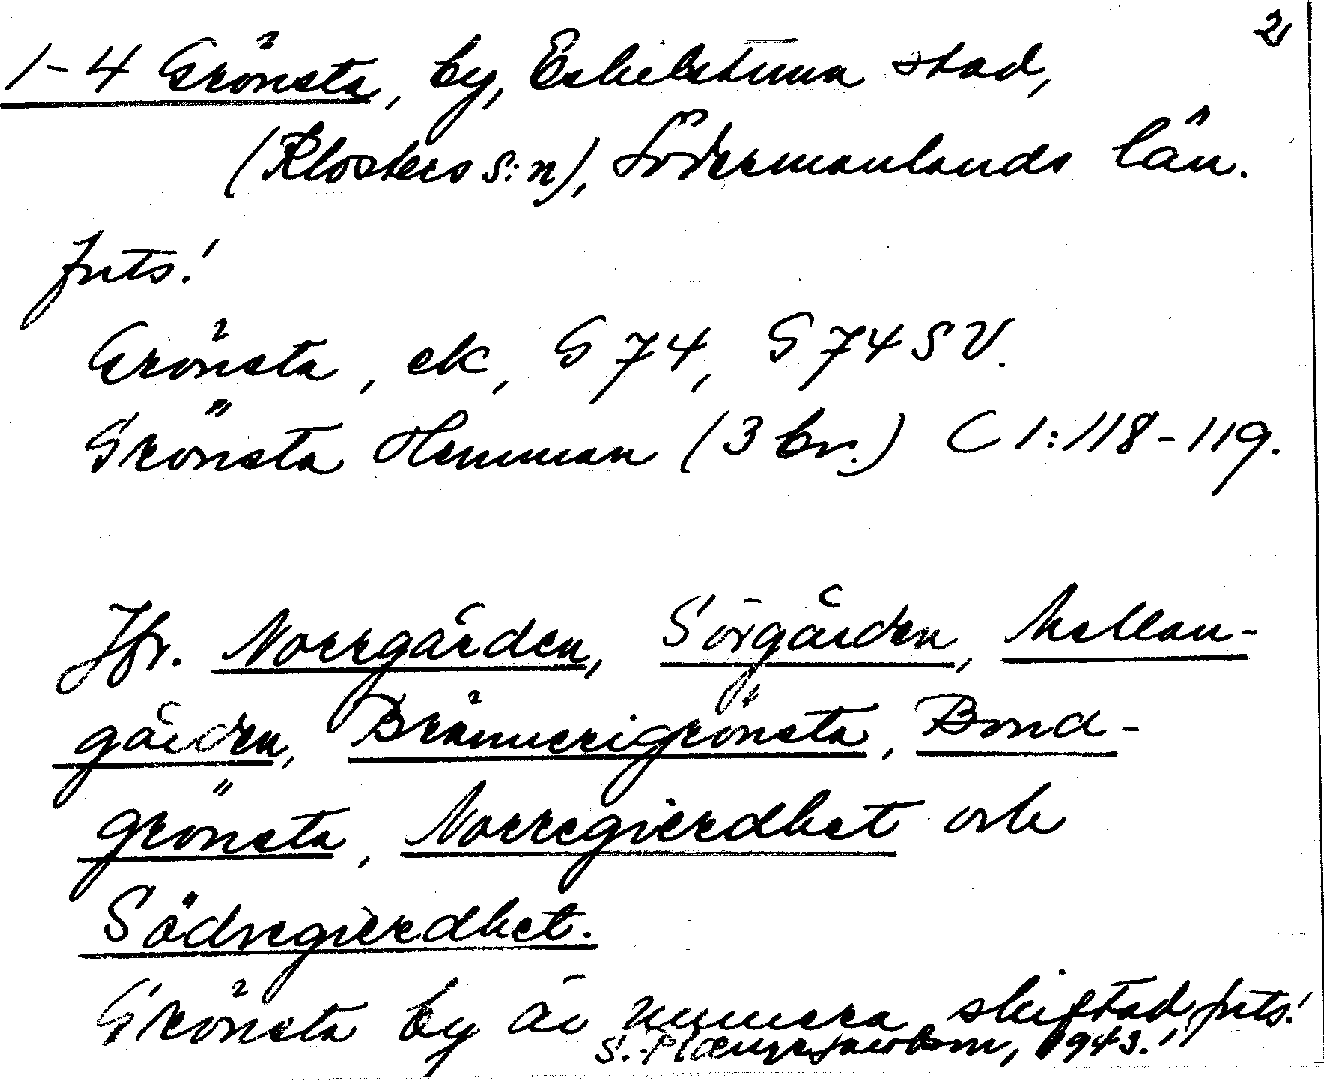 2
1-4 Grönsta, by, Eskilstuna stad,
(Klosters s:n), Södermanlands län.
frts!
Grönsta, ek, G 74, G 74 SV.
Grönsta Hemman (3 br.) C 1:118-119.
Jfr. Norrgården, Sörgården, Mellan-
gården, Brännerigrönsta, Bond-
grönsta, Norregierdhet och
Södregierdhet.
Grönsta by är numera skiftad, frts!
S. 1943.